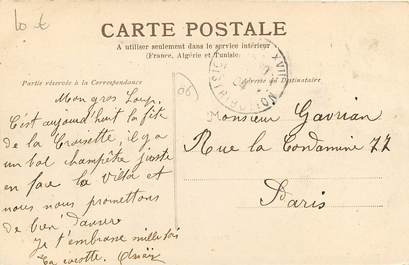 10 €
CARTE POSTALE
A utiliser seulement dans le service intérieur
(France, Algérie et Tunisie)
Partie réservée à la Correspondance
Adresse du Destinataire
06
Mon gros Loup,
C'est aujourd'huit la fête
de la Croisette, il y a
un bal champêtre juste
en face la Villa et
nous nous promettons
de bien danser
Je t'embrasse mille fois
Ta cocotte.
Monsieur Gavrian
Rue la Condamine 77
Paris